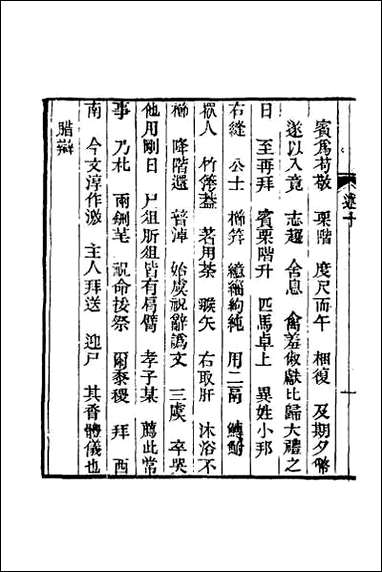 賓爲苟敬　栗階　度尺而午　梱復　及期夕幣
遂以入竟　志趨　舍息　禽羞俶獻比　歸大禮之
日　至再拜　賓栗階升　匹馬卓上　異姓小邦
右縫　公士　櫛笄　繶緇絇純　用二鬲　鱄鮒
人　竹　蓋　若用荼　翭矢　右取肝　沐浴不
櫛　降階還　淖　始虞祝辭譌文　三虞　卒哭
他用剛日　尸俎肵俎皆有肩臂　孝子某　薦此常
事　乃朼　兩鉶芼　祝命挼祭　爾黍稷　拜　西
南　今文淳作激　主人拜送　迎尸　其香體儀也
腊辯